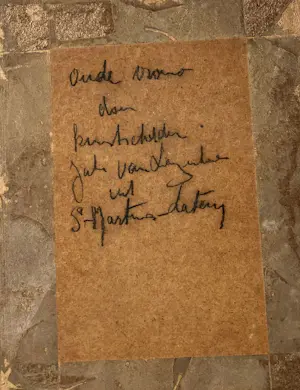 Oude vrouw
door
kunstschilder
Jules
uit
St-Martens-Latem